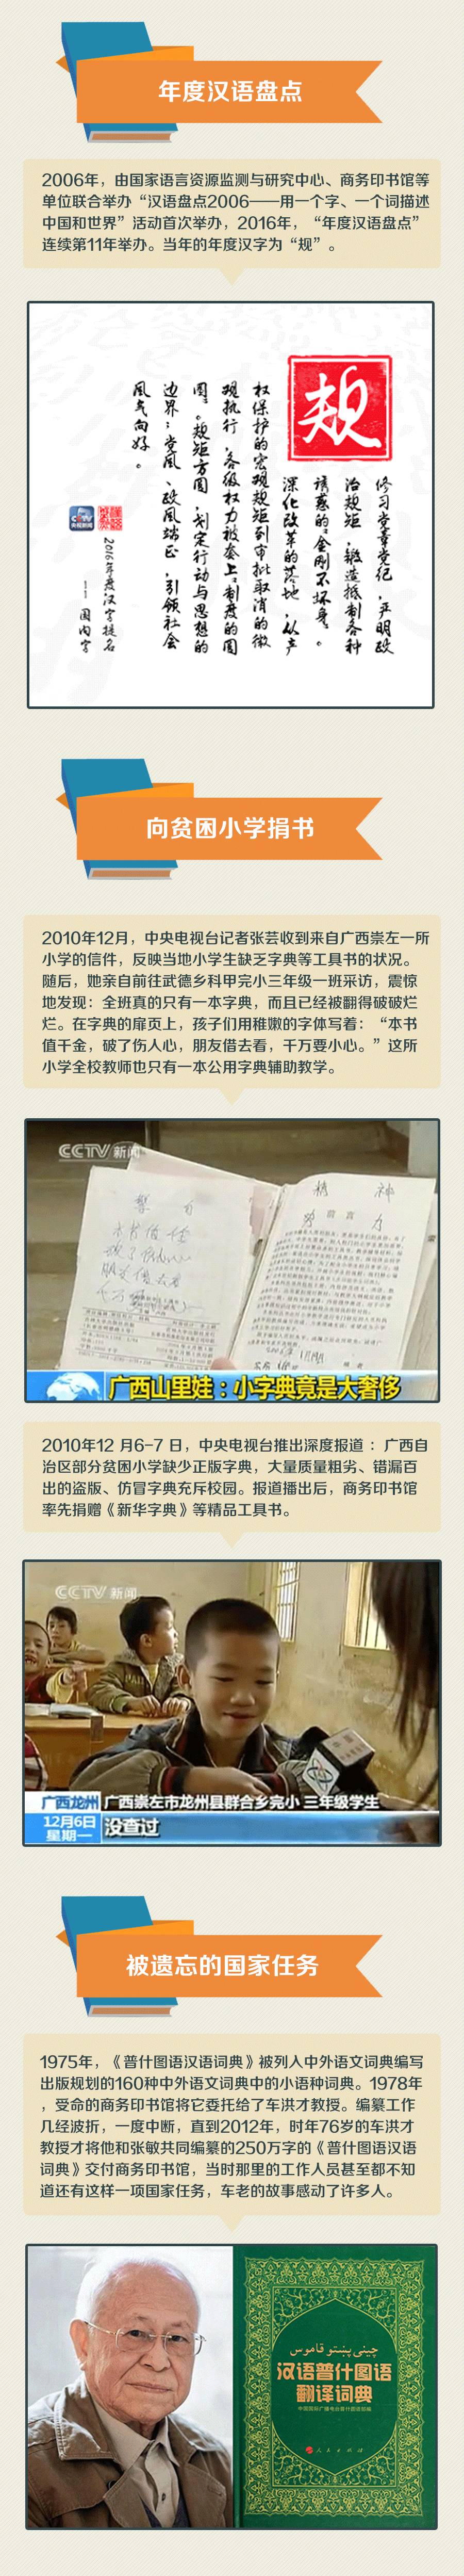 年度汉语盘点
2006年，由国家语言资源监测与研究中心、商务印书馆等
单位联合举办“汉语盘点2006——用一个字、一个词描述
中国和世界”活动首次举办，2016年，“年度汉语盘点”
连续第11年举办。当年的年度汉字为“规”。
规
修习党章党纪，严明政
治规矩，锻造抵制各种
诱惑的“金刚不坏身”。
深化改革的落地，从产
权保护的宏观规矩到审批取消的微
观执行，各级权力被套上“制度的圆
圈”。规矩方圆，划定行动与思想的
边界；党风、政风端正，引领社会
风气向好。
CCTV
央视新闻
2016年度汉字提名
——国内字
向贫困小学捐书
2010年12月，中央电视台记者张芸收到来自广西崇左一所
小学的信件，反映当地小学生缺乏字典等工具书的状况。
随后，她亲自前往武德乡科甲完小三年级一班采访，震惊
地发现：全班真的只有一本字典，而且已经被翻得破破烂
烂。在字典的扉页上，孩子们用稚嫩的字体写着：“本书
值千金，破了伤人心，朋友借去看，千万要小心。”这所
小学全校教师也只有一本公用字典辅助教学。
CCTV 新闻
警句
本书值千金
破了伤人心
朋友借去看
千万
精神
努力
前言
广西山里娃：小字典竟是大奢侈
2010年12 月6-7 日，中央电视台推出深度报道 ：广西自
治区部分贫困小学缺少正版字典，大量质量粗劣、错漏百
出的盗版、仿冒字典充斥校园。报道播出后，商务印书馆
率先捐赠《新华字典》等精品工具书。
CCTV 新闻
广西龙州
广西崇左市龙州县群合乡完小 三年级学生
12月6日
星期一
没查过
被遗忘的国家任务
1975年，《普什图语汉语词典》被列入中外语文词典编写
出版规划的160种中外语文词典中的小语种词典。1978年
，受命的商务印书馆将它委托给了车洪才教授。编纂工作
几经波折，一度中断，直到2012年，时年76岁的车洪才
教授才将他和张敏共同编纂的250万字的《普什图语汉语
词典》交付商务印书馆，当时那里的工作人员甚至都不知
道还有这样一项国家任务，车老的故事感动了许多人。
چيني پښتو قاموس
汉语普什图语
翻译词典
中国国际广播电台普什图语部编
人民出版社